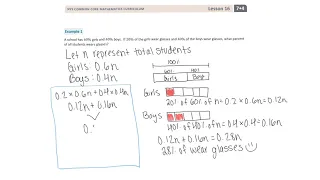 NYS COMMON CORE MATHEMATICS CURRICULUM
Lesson 16
7•4
Example 1
A school has 60% girls and 40% boys. If 20% of the girls wear glasses and 40% of the boys wear glasses, what percent
of all students wears glasses?
Let n represent total students
Girls: 0.6n
Boys: 0.4n
100%
60% 40%
Girls Boys
0.2 × 0.6n + 0.4 × 0.4n
0.12n + 0.16n
0.
Girls
20% of 60% of n = 0.2 × 0.6n = 0.12n
Boys
40% of 40% of n = 0.4 × 0.4n = 0.16n
0.12n + 0.16n = 0.28n
28% of wear glasses